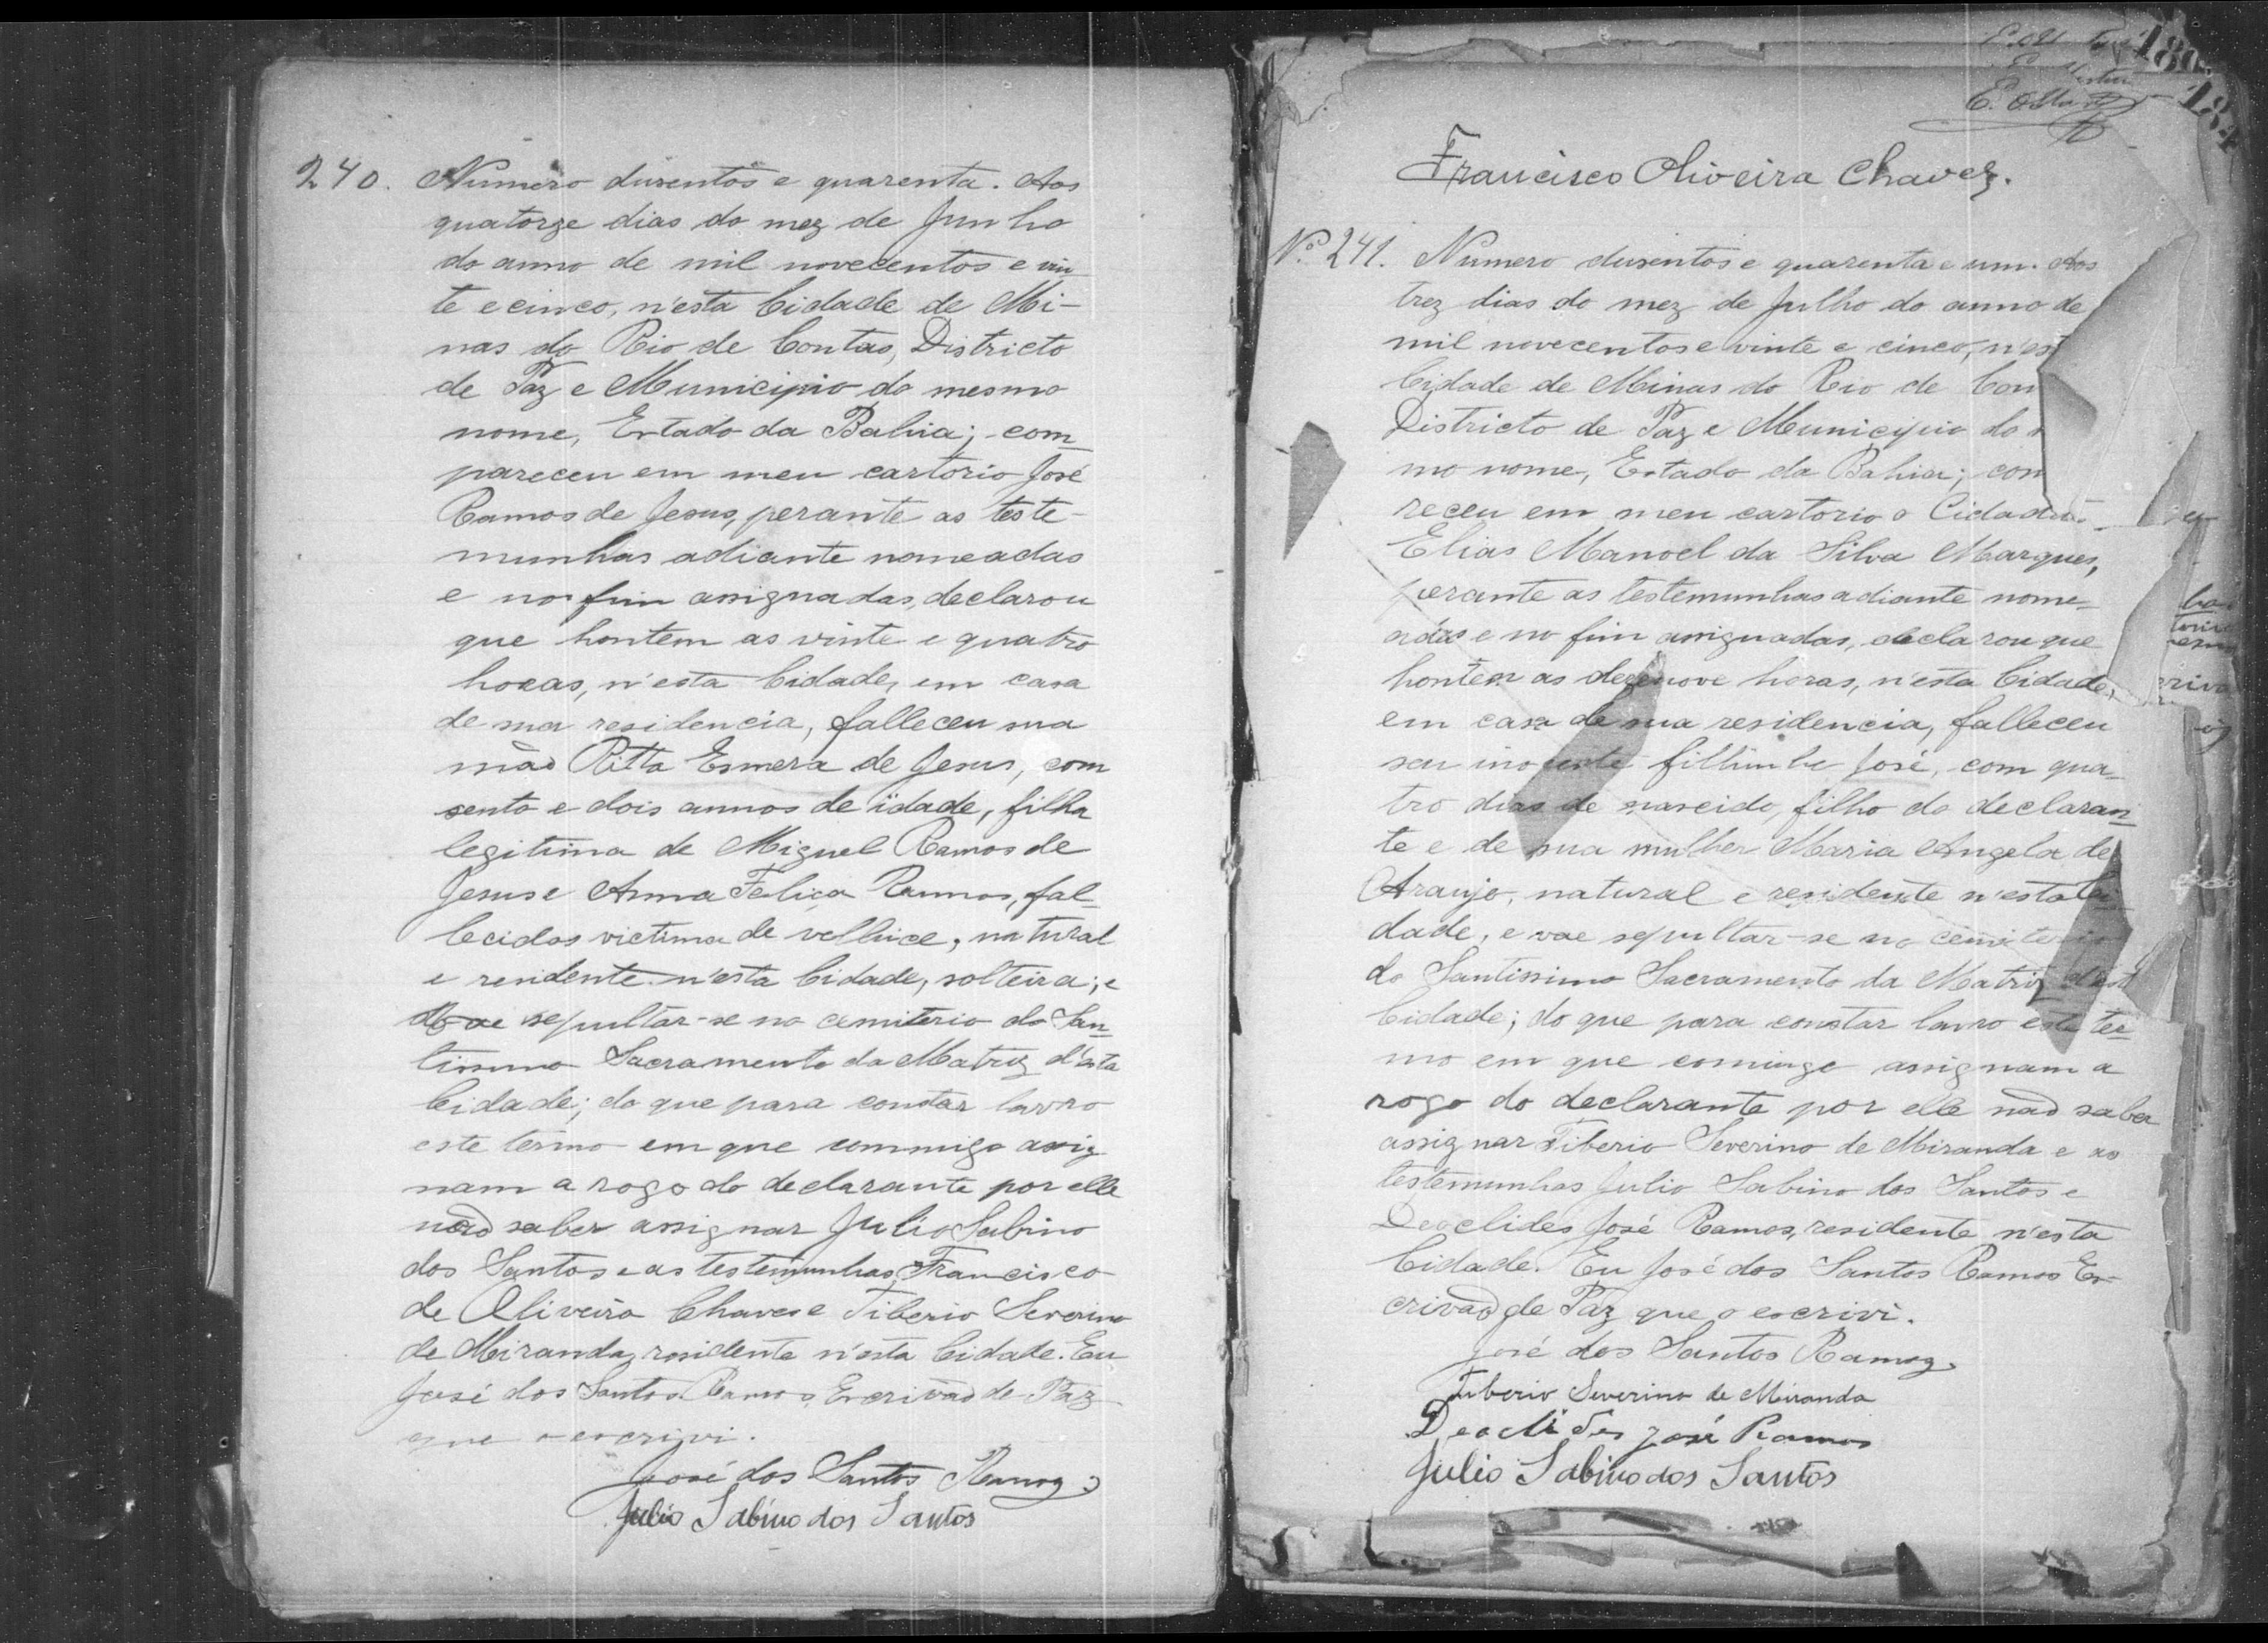 240. Numero dusentos e quarenta. Aos
quatorze dias do mez de Junho
do anno de mil novecentos e vin
te e cinco, n'esta Cidade de Mi-
nas do Rio de Contas, Districto
de Paz e Municipio do mesmo
nome, Estado da Bahia; com
pareceu em meu cartorio José
Ramos de Jesus, perante as teste-
munhas adiante nomeadas
e no fim assignadas, declarou
que hontem as vinte e quatro
horas, n'esta Cidade, em casa
de sua residencia, falleceu sua
mão Ritta Esmera de Jesus, com
sento e dois annos de idade, filha
legitima de Miguel Ramos de
Jesus e Anna Felica Ramos, fal-
lecidos victima de velhice, natural
e residente n'esta Cidade, solteira; e
vae sepultar-se no cemiterio do San-
tissimo Sacramento da Matriz d'esta
Cidade; do que para constar lavro
este termo em que commigo assig
nam a rogo do declarante por elle
não saber assignar Julio Sabino
dos Santos e as testemunhas, Francisco
de Oliveira Chaves e Tiberio Severino
de Miranda, residente n'esta Cidade. Eu
José dos Santos Ramos, Escrivão de Paz
que o escrivi.
José dos Santos Ramoz.
Julio Sabino dos Santos
180
E.
184
Francisco Oliveira Chavez.
Nº 241. Numero dusentos e quarenta e um. Aos
trez dias do mez de Julho do anno de
mil novecentos e vinte e cinco, n'est
Cidade de Minas do Rio de Con
Districto de Paz e Municipio do
mo nome, Estado da Bahia; com
receu em meu cartorio o Cidadão
Elias Manoel da Silva Marques,
perante as testemunhas adiante nome-
adas e no fim assignadas, declarou que
hontem as dezenove horas, n'esta Cidade,
em casa de sua residencia, falleceu
seu inocente filhinho José, com qua-
tro dias de nascido, filho do declaran-
te e de sua mulher Maria Angela de
Araujo, natural e residente n'esta Ci-
dade, e vae sepultar-se no cemiterio
do Santissimo Sacramento da Matriz dest
Cidade; do que para constar lavro este ter-
mo em que comigo assignam a
rogo do declarante por elle não saber
assignar Tiberio Severino de Miranda e as
testemunhas Julio Sabino dos Santos e
Deoclides José Ramos, residente n'esta
Cidade. Eu José dos Santos Ramos Es-
crivão de Paz que o escrivi.
José dos Santos Ramoz.
Tiberio Severino de Miranda
Deoclides José Ramos
Julio Sabino dos Santos